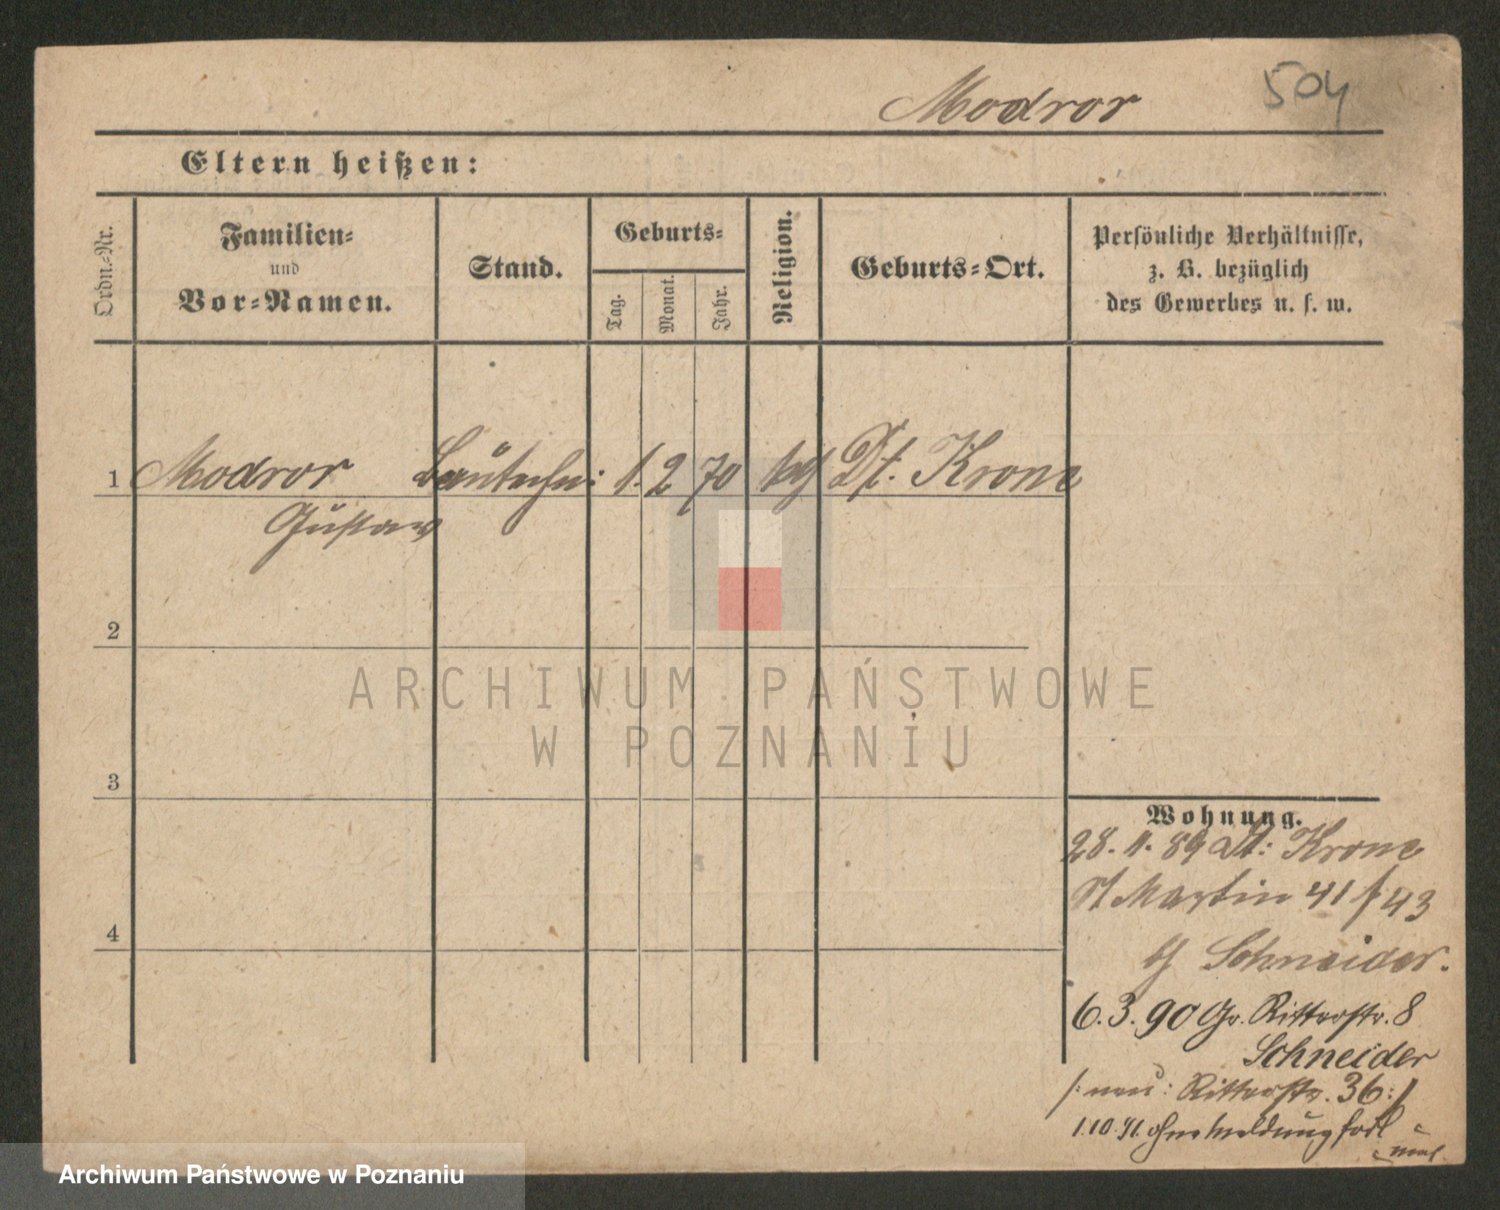 Modror 504
Eltern heißen:
Ordn.-Nr.
Familien-
und
Vor-Namen.
Stand.
Geburts-
Tag.
Monat.
Jahr.
Religion.
Geburts-Ort.
Persönliche Verhältnisse,
z. B. bezüglich
des Gewerbes u. s. w.
1 Modror 1. 2 70 Dt. Krone
Gustav
2
3
4
Wohnung.
28. 11. 89 Dt: Krone
St Martin 41 / 43
b/ Schneider.
6. 3. 90 Gr. Ritterstr. 8
Schneider
/: neu: Ritterstr. 36 :/
1.10.91. ohne Meldung fort
ARCHIWUM PAŃSTWOWE
W POZNANIU
Archiwum Państwowe w Poznaniu